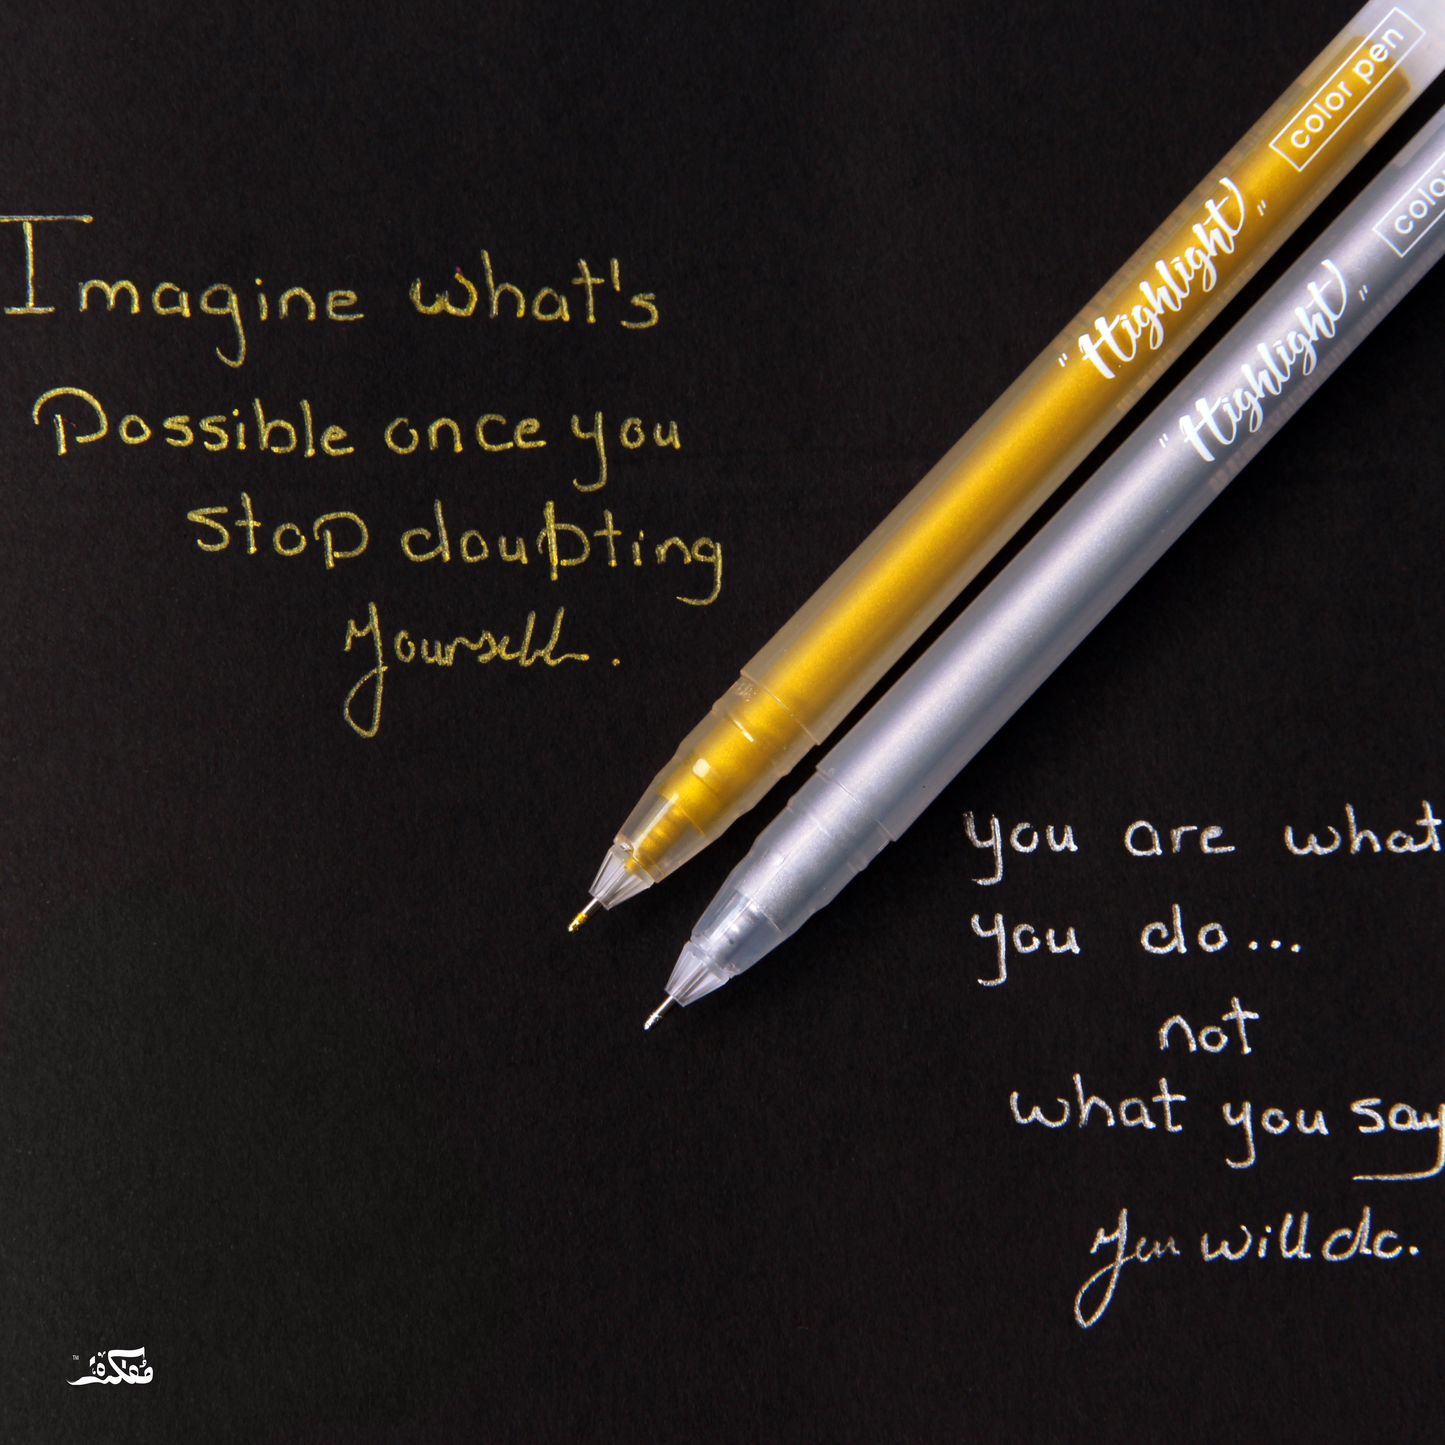 Imagine what's
Possible once you
stop doubting
yourself.
"Highlight"
color pen
"Highlight"
color
you are what
you do...
not
what you say
you will do.
مُفكرة
TM